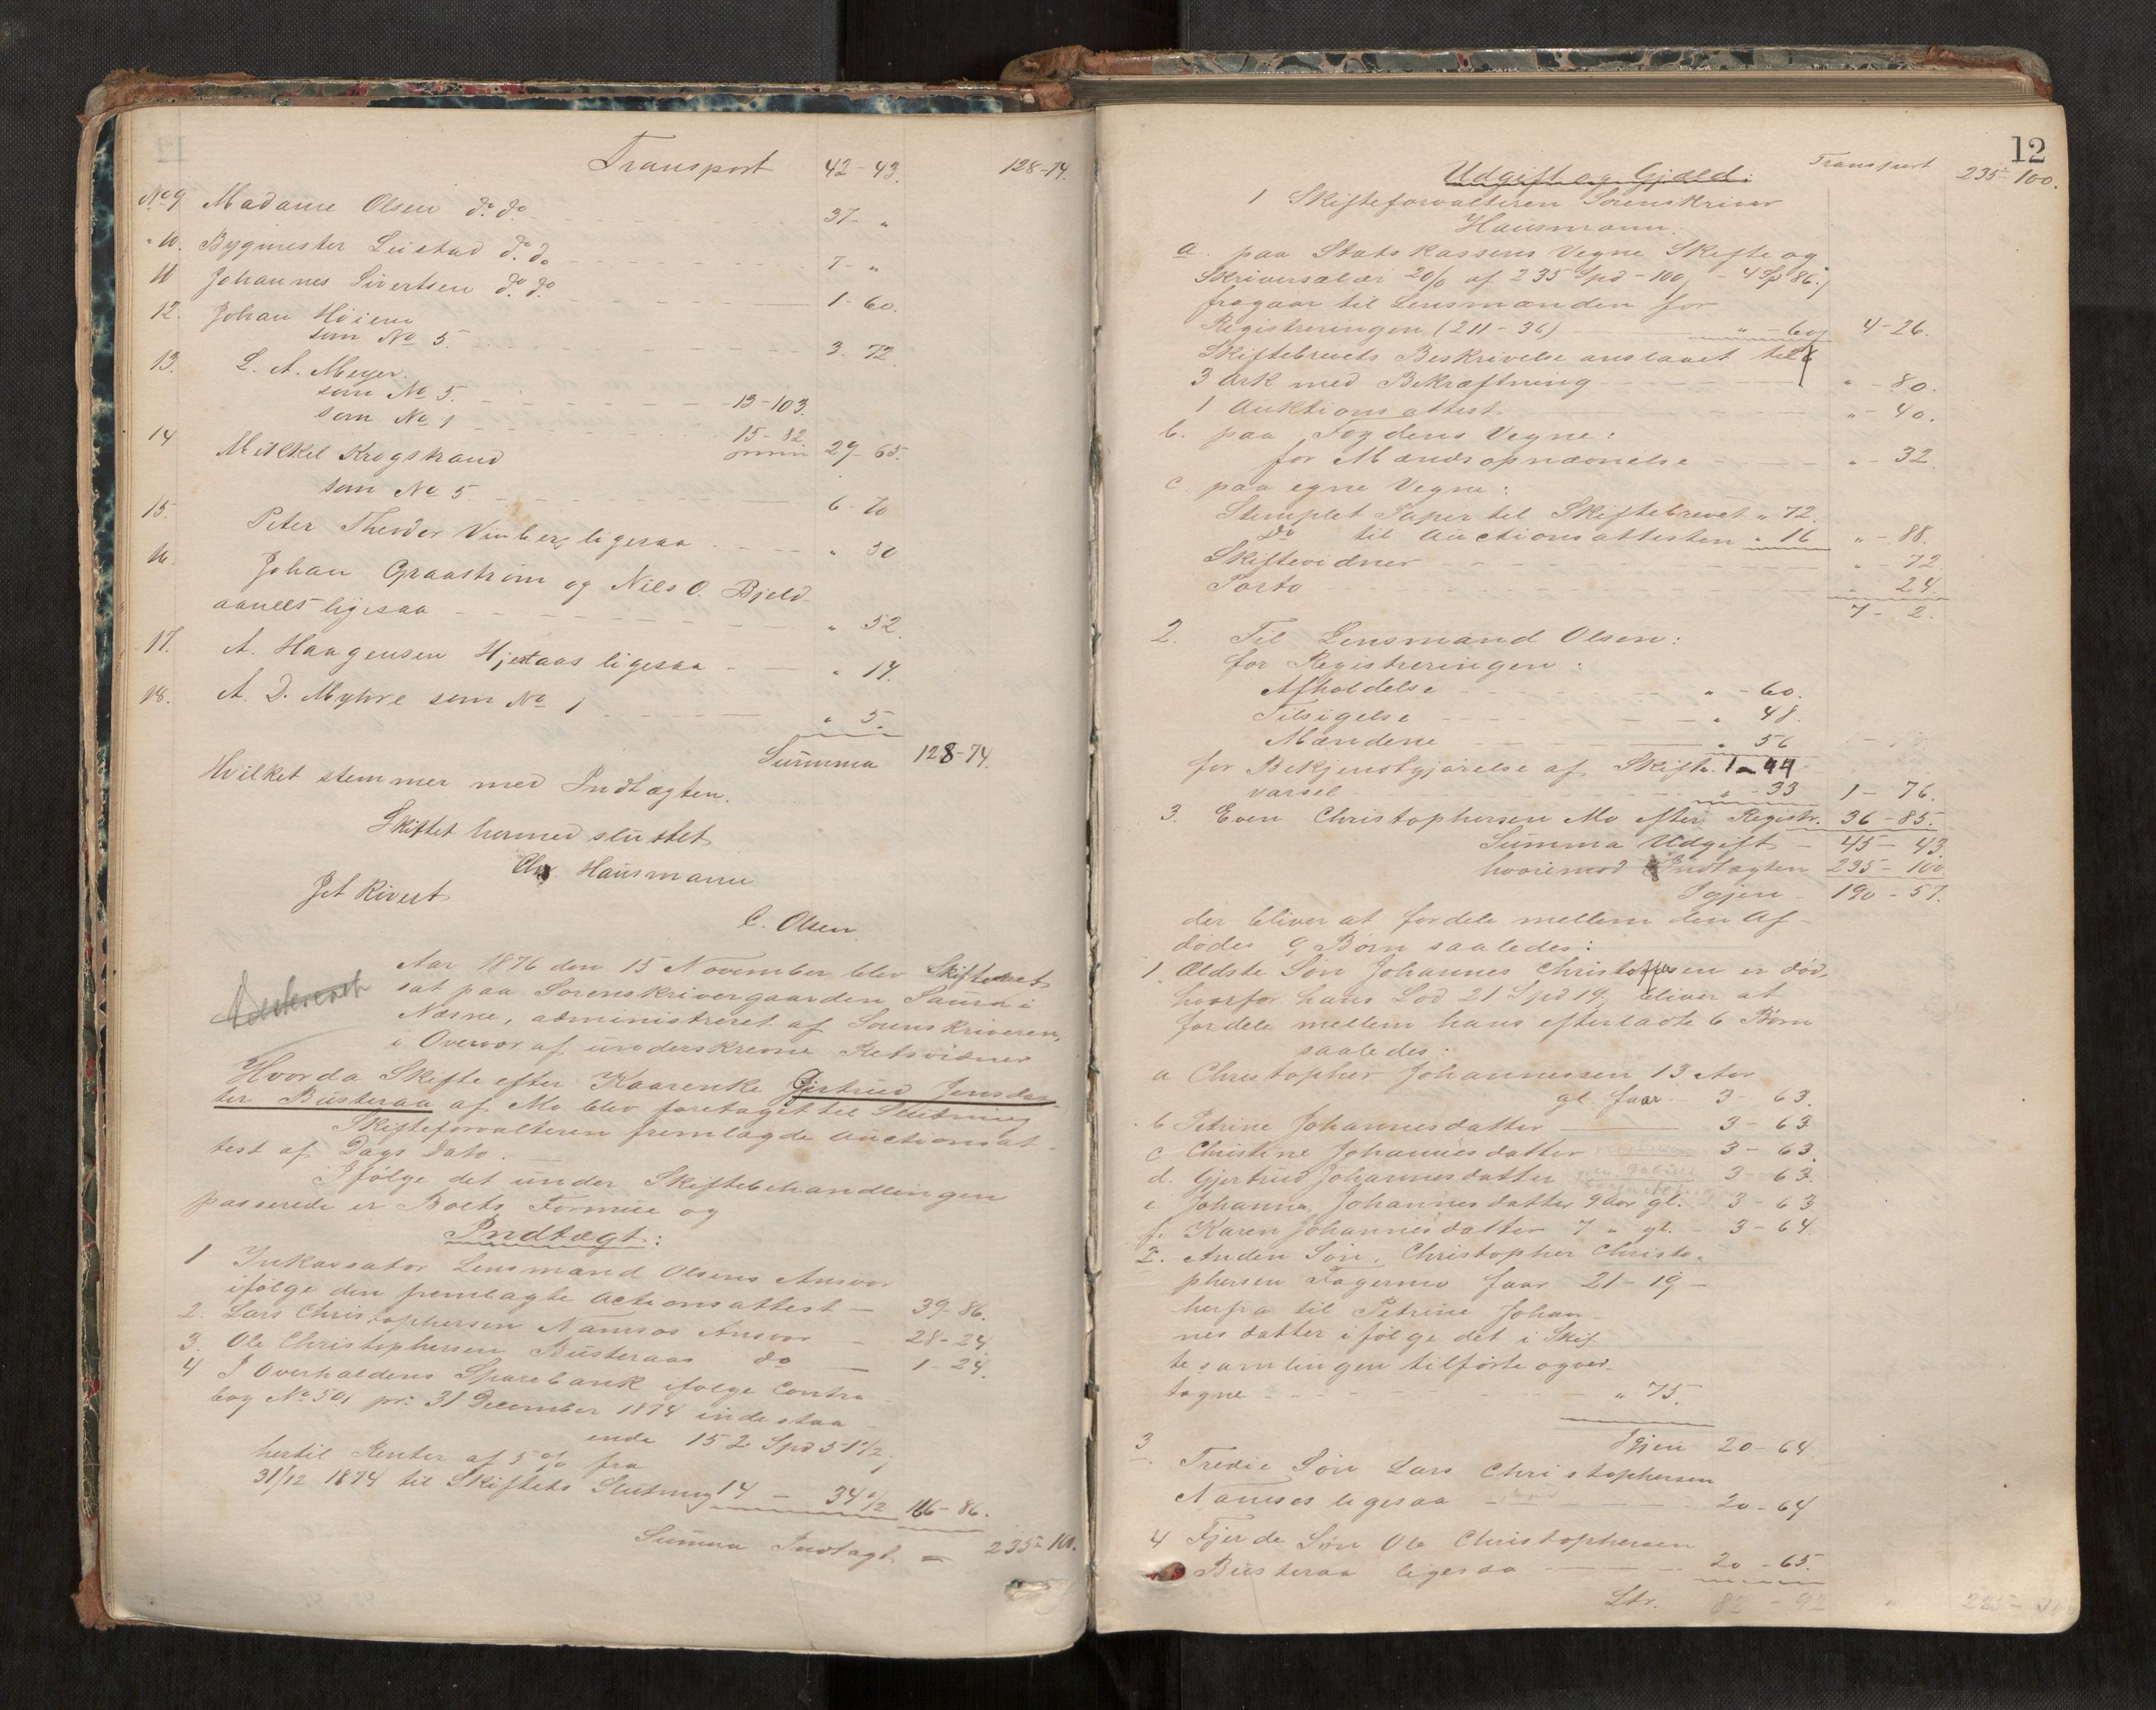 Transport 42-43. 128-74.
No 9 Madame Olsen do. do. 37- "
" 10. Bygmester Leistad do. do 7- "
11 Johannes Sivertsen do. do. 1-60.
12. Johan Höiem
som No 5. 3. 72
13. L. A. Meyer.
som No 5. 13-103.
som No 1 15-82. 29-65.
14 Mikkel Krogstrand
som No 5. 6-70
15. Peter Theodor Vinberg ligesaa " 50
16. Johan Graaström og Nils O. Bjeld-
aanes ligesaa " 52.
17. A. Haagensen Hjestaas ligesaa " 14.
18. A. D. Myhre som No 1 " 5.
Summa 128-74.
Hvilket stemmer med Indtægten.
Skiftet hermed sluttet
Chr. Hausmann
Jet Rivert
C. Olsen
Aar 1876 den 15 November blev Skifteret
sat paa Sorenskrivergaarden Saura i
Næsne, administreret af Sorenskriveren,
i Overvær af underskrevne Retsvidner
Hvorda Skifte efter Kaarenke Gjertrud Jensdat-
ter Büsteraa af Mo blev foretaget til Slutning
Skifteforvalteren fremlagde Auctionsat-
test af Dags Dato.
Ifölge det under Skiftebehandlingen
passerede er Boets Formue og
Indtægt:
1 Inkassator Lensmand Olsens Ansvar
ifölge den fremlagte Actionsattest — 39-86.
2. Lars Christophersen Namsos Ansvar — 28-24.
3. Ole Christophersen Büsteraas do — 1-24.
4 I Overhaldens Sparebank ifölge Contra-
bog No 501 pr. 31 December 1874 indestaa-
ende 152 Spd 51 1/2
hertil Renter af 5 % fra
31/12 1874 til Skiftets Slutning 14 - 34 1/2 166-86.
Summa Indtægt = 235-100.
12
Transport 235-100.
Udgift og Gjæld:
1 Skifteforvalteren Sorenskriver
Hausmann.
a. paa Statskassens Vegne Skifte og
Skriversalær 2% af 235 Spd-100 - 4 Sp 86
fragaar til Lensmanden for
Registreringen (211-36) " - 60 4-26.
Skiftebrevets Beskrivelse anslaaet til
3 Ark med Bekræftning " - 80.
1 Auktionsattest " - 40.
b. paa Fogdens Vegne:
for Mændsopnævnelse " - 32.
c. paa egne Vegne:
Stemplet Papir til Skiftebrevet " 72.
do til Auctionsattesten " 16 " - 88.
Skiftevidner " 72
Porto " 24.
7 - 2.
2. Til Lensmand Olsen:
for Registreringen:
Afholdelse " - 60.
Tilsigelse " 48.
Mændene " 56
for Bekjendtgjörelse af Skifte- 1-44
varsel " - 33 1 - 76.
3. Even Christophersen Mo efter Registr. 36-85.
Summa Udgift - 45-43
hvorimod Indtægten 235-100
Igjen - 190-57.
der bliver at fordele mellem den Af-
dödes 9 Börn saaledes:
1. Ældste Sön Johannes Christoffersen er död,
hvorfor hans Lod 21 Spd 19, bliver at
fordele mellem hans efterladte 6 Börn
saaledes:
a Christopher Johannessen 13 Aar
gl. faar 3 - 63.
b Petrine Johannesdatter 3 - 63
c Christine Johannesdatter 3 - 63.
d. Gjertrud Johannesdatter 3 - 63.
e Johanna Johannesdatter 9 aar gl. 3 - 63
f. Karen Johannesdatter 7 " gl. - 3 - 64.
2. Anden Sön, Christopher Christo-
phersen Fagermo faar 21-19-
herfra til Petrine Johan-
nesdatter ifölge det i Skif-
tesamlingen tilförte og ved-
tagne " 75.
Igjen 20-64
3. Tredie Sön Lars Christophersen
Namsos ligesaa 20-64
4 Fjerde Sön Ole Christophersen
Büsteraa ligesaa 20-65.
Ltr. 82 - 92 " 235-100